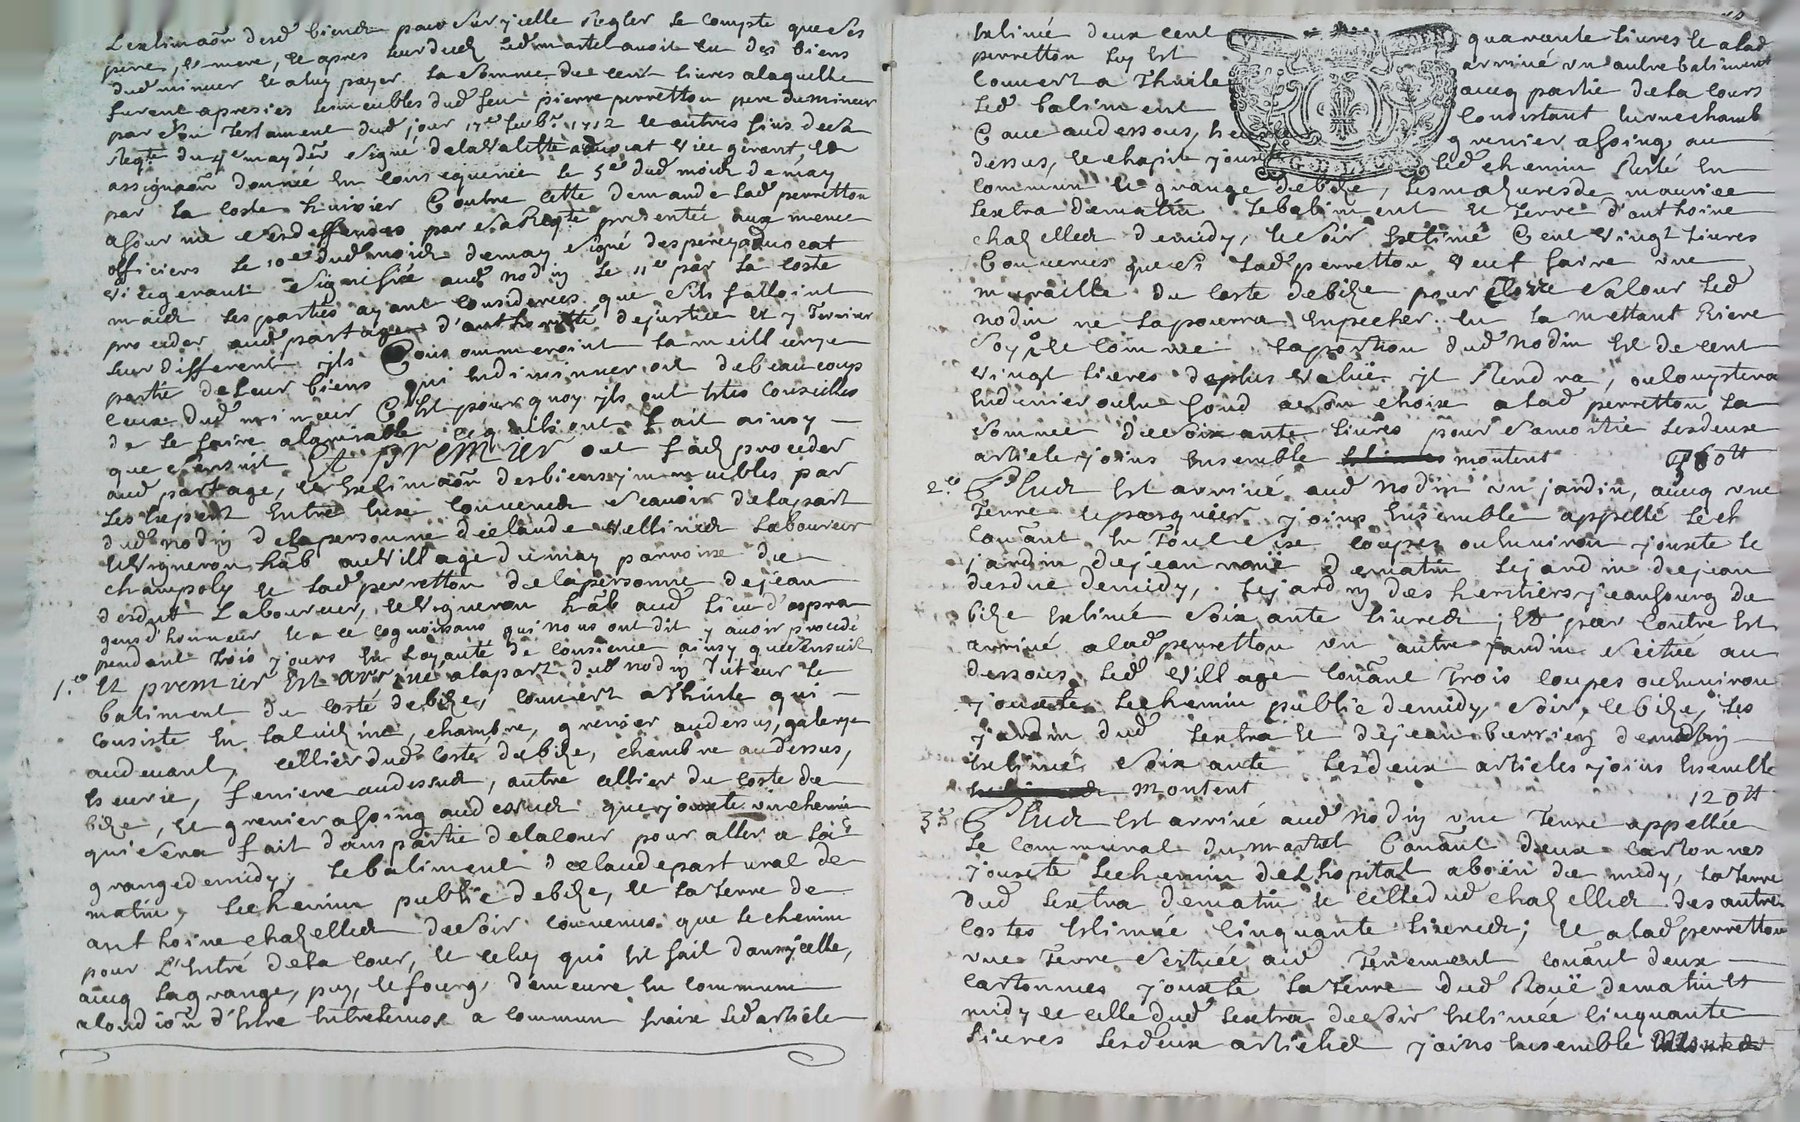 L'estimaõn desd biendz pour sur ycelle Regler le compte que ses
pere, et mere, et apres leur decedz led martel avoit eu des biens
dud mineur et a luy payer la somme de cent livres a laquelle
furent apresiés lesmeubles dud feu pierre perretton pere du mineur
par son Testament dud jour 17e 1712 et autres fins de la
Reqte du 4e may der signé delavalette advocat et vice gerant, et
assignaõn donnée en consequence le 5e dud moidz de may
par la coste huissier Contre cette demande lad perretton
a fourni ses deffendes par sa Reqte presentée aux meme
officiers le 10e dud moidz de may signé desperey advocat
vicegerant signifiée aud nodin le 11e par la coste
maidz les parties ayant considerees que sils falloint
proceder aud partage d'authorité dejustice et y Terminer
leur different jls Consommeroint la meilleure
partie de leur biens qui diminueroit de beaucoup
ceux dud mineur C'est pourquoy jls ont estés conseilles
de le faire alamiable ce quils ont fait ainsy
que s'ensuit Et premier ont faidz proceder
aud partage, et estimaõn desbiens ymmeubles par
les expertz entre eux convenudz scavoir de la part
dud nodin de la personne de claude vellinedz laboureur
et vigneron hãb au village dumay parroisse de
champoly et lad perretton de la personne de jean
desdut Laboureur, et vigneron hãb aud lieu d'aspra
gens d'honneur et a ce cognoissans qui nous ont dit y avoir procedé
pendant trois jours en Loyauté de consience ainsy quil ensuit
1.o Et premier est arrivé alapart dud nodin Tuteur le
batiment du costé debize, couvert a Thuile qui
consiste en la cuizine, chambre, grenier audessus, galerye
audevant, cellier dud coste debize, chambre audessus,
Escurie, feniere audessudz, autre cellier du coste de
bize, et grenier afoing audessudz que jouxte un chemin
qui sera fait dans partie delacour pour aller a la
grange demidy, le batiment de claude pastural de
matin, lechemin public debize, et la Terre de
anthoine chazelledz desoir convenus que le chemin
pour L'entré dela cour, et celuy qui est fait dans ycelle,
avecq la grange, puy, et fourg, demeure en commun
a condiõn d'estre entretenus a commun fraix led article
Estimé deux cent quarante livres et a lad
perretton luy est arrivé un autre batiment
Couvert a Thuile avecq partie de la cours
led batiment Consistant en une chamb
Cave audessous, grenier afoing au
dessus, et chapit jouxte led chemin Resté en
commun et grange debize, les mazures de maurice
lextra dematin lebatiment et Terre d'anthoine
chazelledz demidy, et soir Estimé Cent vingt livres
Convenus que si lad perretton veut faire une
muraille du coste debize pour Clore sa cour led
nodin ne la pourra Enpecher en la mettant Riere
soy, Et comme la portion dud nodin est de cent
vingt livres de plus value jl Rendra,
en denier ou en fond a son choix a lad perretton la
somme de soixante livres pour sa moitié lesdeux
article joins ensemble montent 360tt
2.o Pludz est arrivé aud nodin un jardin, avecq une
Terre et pasquier, joins ensemble appellé lech
Conãnt en Tout six coupes ou environ jouxte le
jardin dejean rouë dematin lejardin dejean
desdut demidy, lejardin des heritiers jeanfourg de
bize Estimée soixante livredz; Et par contre est
arrivé a lad perretton un autre jardin scitué au
dessous led village Conãnt Trois coupes ou environ
jouxte lechemin public demidy, soir, et bize, les
jardin dud lextra et dejean demattin
estimés soixante lesdeux articles joins ensemble
montent 120tt
3.e Pludz est arrivé aud nodin une Terre appellée
le communal du martel Conãnt deux cartonnes
jouxte lechemin del hopital a boën de midy, la terre
dud lextra dematin et celle dud chazelledz des autres
costes Estimée Cinquante livredz; et a lad perretton
une Terre scituée aud Tenement conãnt deux
cartonnes jouxte la terre dud Rouë dematin et
midy et celle dud lextra de soir estimée cinquante
livres lesdeux articledz joins ensemble